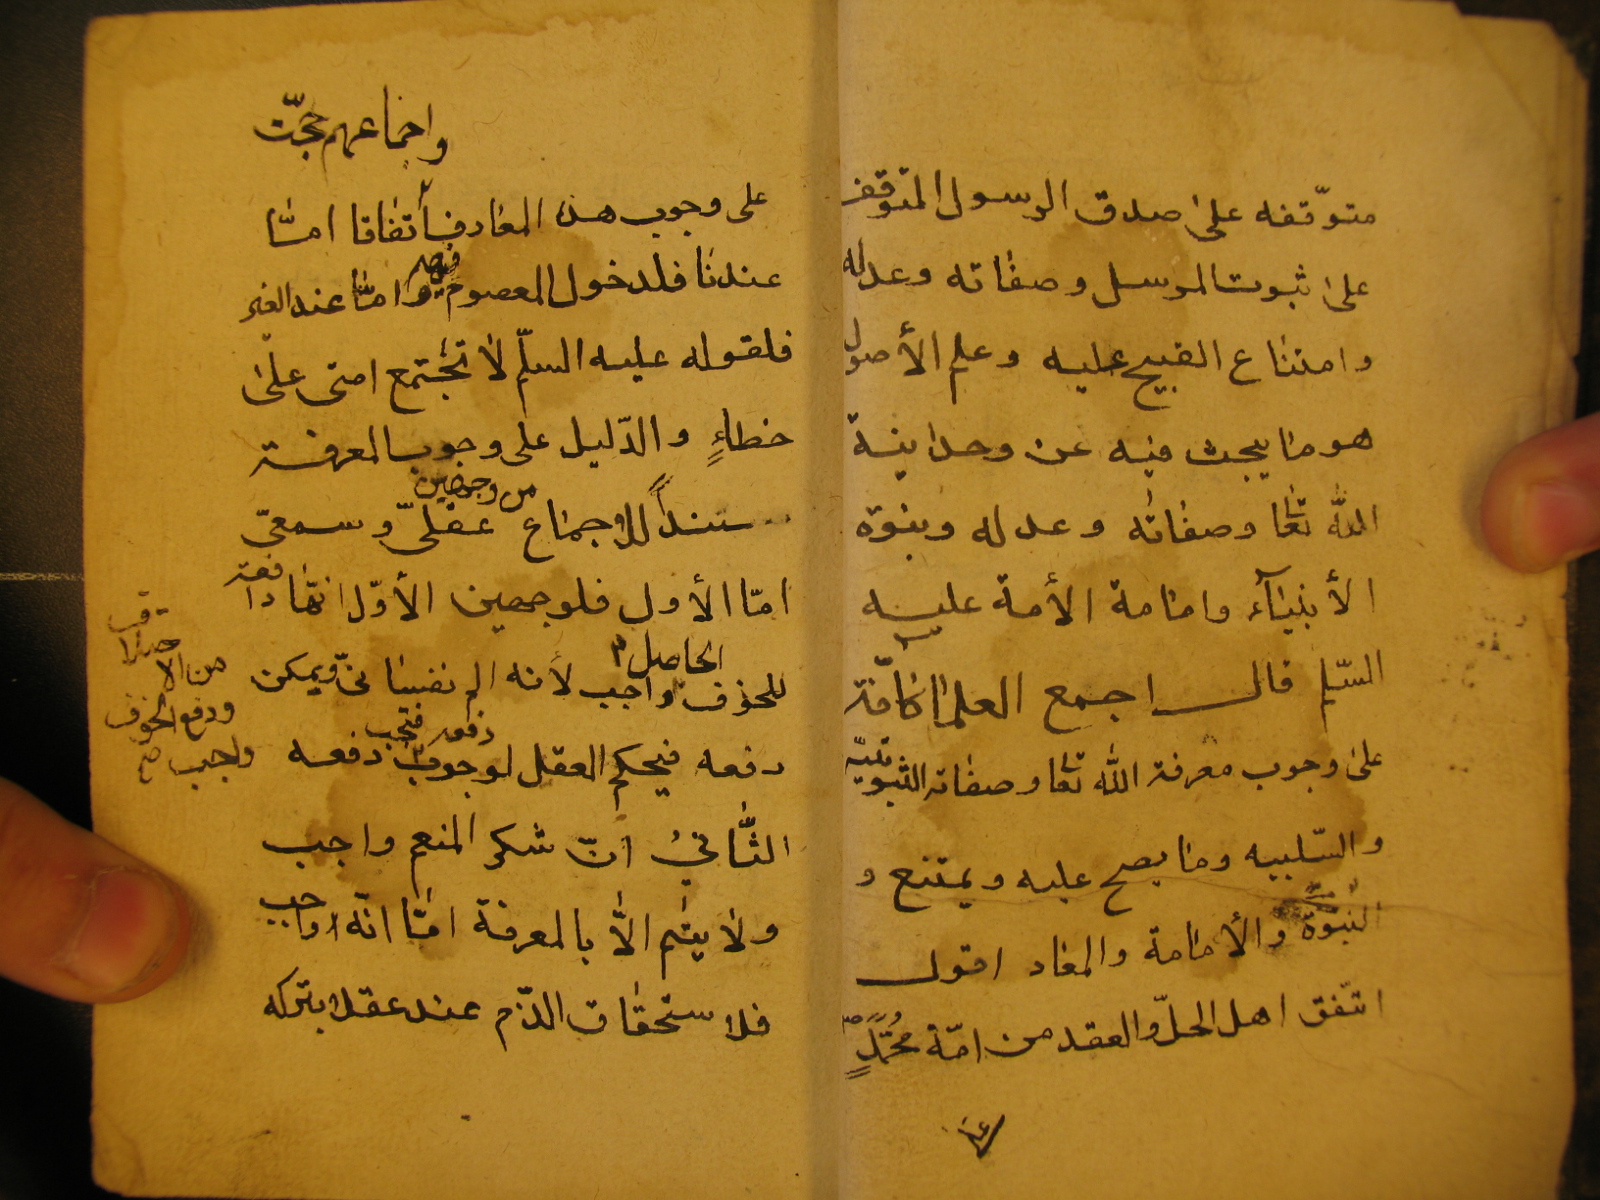 متوقفه على صدق الرسول المتوقف
على ثبوت المرسل وصفاته وعدله
وامتناع القبيح عليه وعلم الأصول
هو ما يبحث فيه عن وحدانية
الله تعا وصفاته وعدله ونبوة
الأنبيآء وامامة الأمة عليه
السّلم قال اجمع العلمآ كافّة
على وجوب معرفة الله تعا وصفاته الثبوتيّه
والسّلبيه وما يصح عليه ويمتنع و
النبوّة والأمامة والمعاد اقول
اتّفق اهل الحلّ والعقد من امّة محمّدٍ ص
على
واجماعهم حجّت
على وجوب هذه المعارف أتفاقا امّا
عندنا فلدخول المعصوم فيهم وامّا عند الغير
فلقوله عليه السلّم لا تجتمع امتى على
خطاءٍ والدّليل على وجوب المعرفة
من وجهين
سنداً للاجماع عقليّ وسمعيّ
امّا الأول فلوجهين الأوّل انّها دافعة
الحاصل
للخوف واجب لأنه الم نفسانىّ ويمكن
دفعه فتجب
دفعه فيحكم العقل لوجوب دفعه
الثّاني انّ شكر المنعم واجب
ولا يتم الّا بالمعرفة امّا انّه واجب
فلاستحقاق الذّم عند عقلا بتركه
من الا
ودفع الخوف
واجب صح